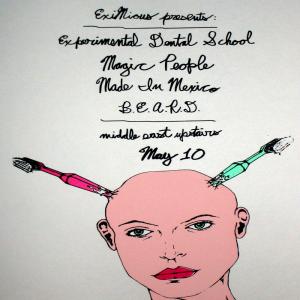 ExiMious presents:
Experimental Dental School
Magic People
Made In Mexico
B.E.A.R.D.
middle east upstairs
May 10